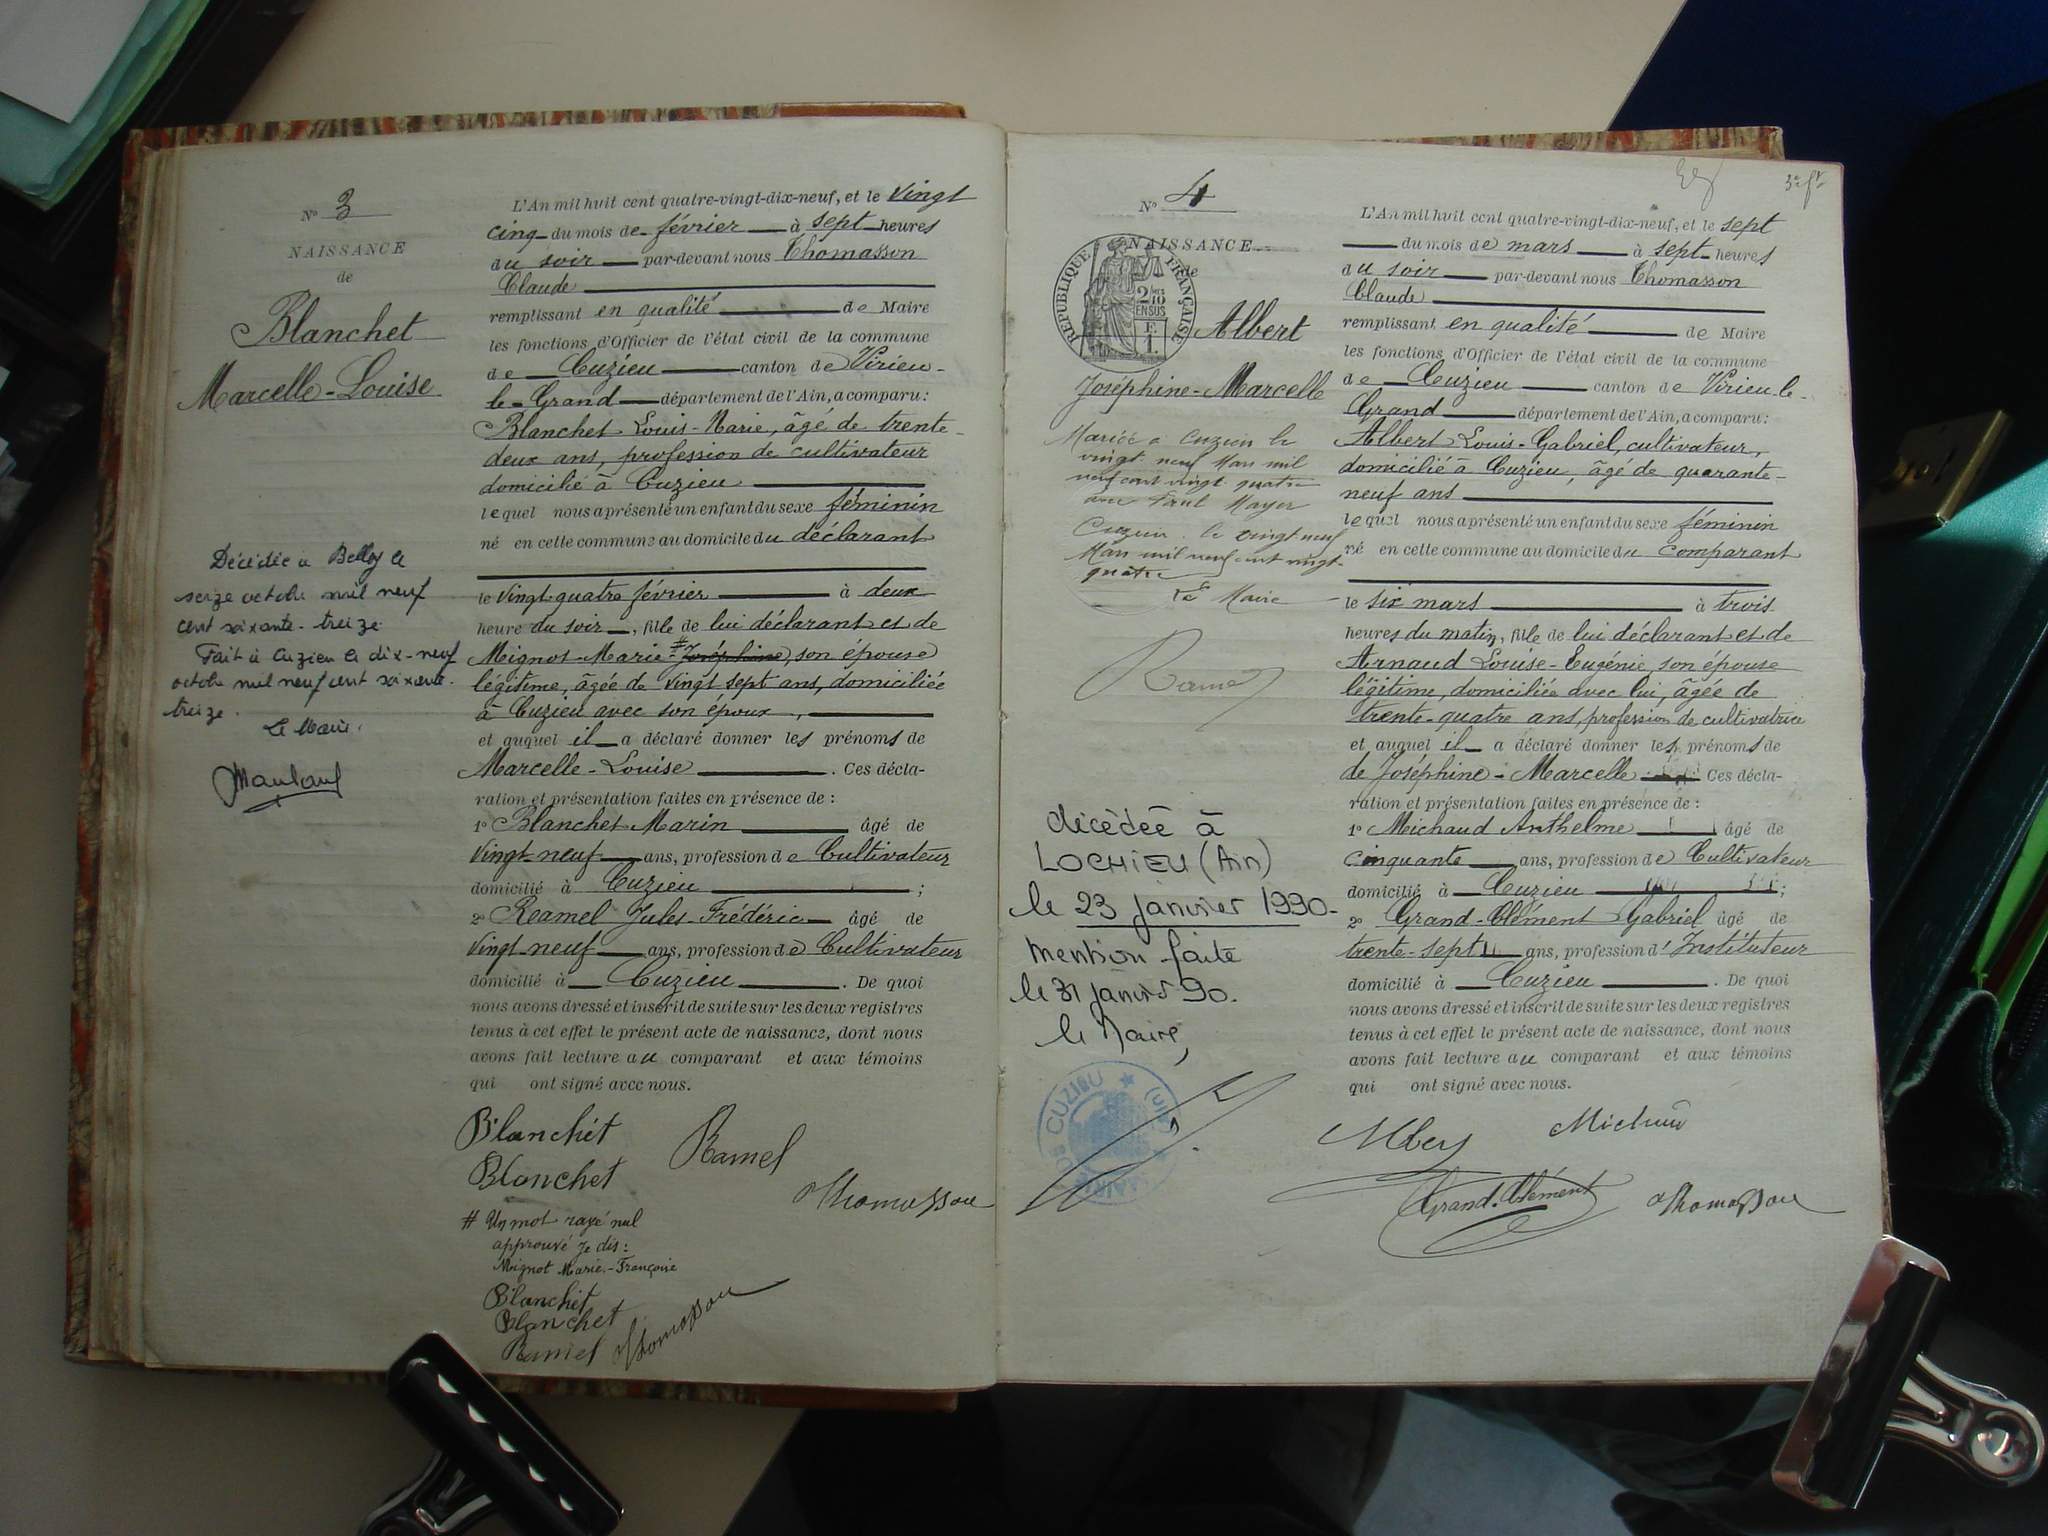 N° 3
NAISSANCE
de
Blanchet
Marcelle-Louise
Décédée à Belley le
seize octobre mil neuf
cent soixante-treize
Fait à Cuzieu le dix-neuf
octobre mil neuf cent soixante-
treize.
Le Maire.
L'An mil huit cent quatre-vingt-dix-neuf, et le vingt
cinq du mois de février à sept heures
du soir par-devant nous Thomasson
Claude
remplissant en qualité de Maire
les fonctions d'Officier de l'état civil de la commune
de Cuzieu canton de Virieu-
le-Grand département de l'Ain, a comparu:
Blanchet Louis-Marie, âgé de trente-
deux ans, profession de cultivateur
domicilié à Cuzieu
lequel nous a présenté un enfant du sexe féminin
né en cette commune au domicile du déclarant
le vingt-quatre février à deux
heure du soir, fille de lui déclarant et de
Mignot Marie-# Joséphine, son épouse
légitime, âgée de vingt sept ans, domiciliée
à Cuzieu avec son époux,
et auquel il a déclaré donner les prénoms de
Marcelle-Louise. Ces décla-
ration et présentation faites en présence de :
1° Blanchet Marin âgé de
vingt-neuf ans, profession de Cultivateur
domicilié à Cuzieu ;
2° Reamel Jules-Frédéric âgé de
vingt-neuf ans, profession de Cultivateur
domicilié à Cuzieu. De quoi
nous avons dressé et inscrit de suite sur les deux registres
tenus à cet effet le présent acte de naissance, dont nous
avons fait lecture au comparant et aux témoins
qui ont signé avec nous.
Blanchet
Ramel
Blanchet
Thomasson
# Un mot rayé nul
approuvé Je dis :
Mignot Marie-Françoise
Blanchet
Blanchet
Ramel Thomasson
3e ft
N° 4
NAISSANCE
de
RÉPUBLIQUE FRANÇAISE
2/10
EN SUS
Albert
Joséphine-Marcelle
Mariée à Cuzieu le
vingt neuf Mars mil
neuf cent vingt quatre
avec Paul Mayer
Cuzieu le vingt neuf
Mars mil neuf cent vingt-
quatre
Le Maire
Ramel
décédée à
LOCHIEU (Ain)
le 23 janvier 1990-
mention faite
le 31 janvier 90.
le Maire,
MAIRIE DE CUZIEU (AIN)
L'An mil huit cent quatre-vingt-dix-neuf, et le sept
du mois de mars à sept heures
du soir par-devant nous Thomasson
Claude
remplissant en qualité de Maire
les fonctions d'Officier de l'état civil de la commune
de Cuzieu canton de Virieu-le-
Grand département de l'Ain, a comparu:
Albert Louis-Gabriel, cultivateur,
domicilié à Cuzieu, âgé de quarante-
neuf ans
lequel nous a présenté un enfant du sexe féminin
né en cette commune au domicile du comparant
le six mars à trois
heures du matin, fille de lui déclarant et de
Arnaud Louise-Eugénie, son épouse
légitime, domiciliée avec lui, âgée de
trente-quatre ans, profession de cultivatrice
et auquel il a déclaré donner les prénoms
de Joséphine-Marcelle Ces décla-
ration et présentation faites en présence de :
1° Michaud Anthelme âgé de
cinquante ans, profession de Cultivateur
domicilié à Cuzieu ;
2° Grand-Clément Gabriel âgé de
trente-sept ans, profession d'Instituteur
domicilié à Cuzieu. De quoi
nous avons dressé et inscrit de suite sur les deux registres
tenus à cet effet le présent acte de naissance, dont nous
avons fait lecture au comparant et aux témoins
qui ont signé avec nous.
Grand-Clément
Thomasson